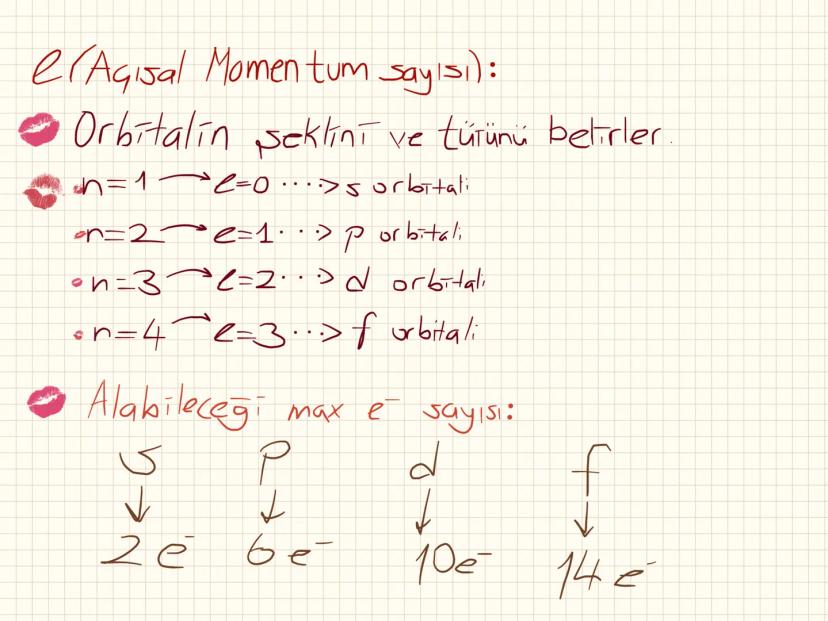 l (Açısal Momentum sayısı):
Orbitalin şeklini ve türünü belirler.
n=1 → l=0 ····> s orbitali
n=2 → l=1 ···> p orbitali
n=3 → l=2 ···> d orbitali
n=4 → l=3 ···> f orbitali
Alabileceği max e⁻ sayısı:
s p d f
↓ ↓ ↓ ↓
2e⁻ 6e⁻ 10e⁻ 14e⁻